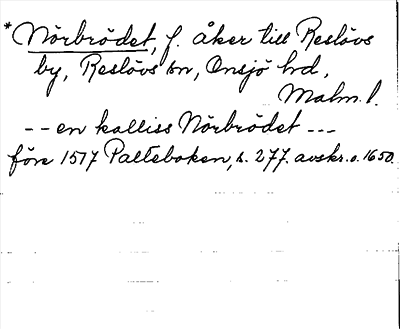 *Nörbrödet, f. åker till Reslövs
by, Reslövs sn, Onsjö hd,
Malm. l.
-- en kalliss Nörbrödet ---
före 1517 Palteboken, s. 277. avskr. o. 1650.